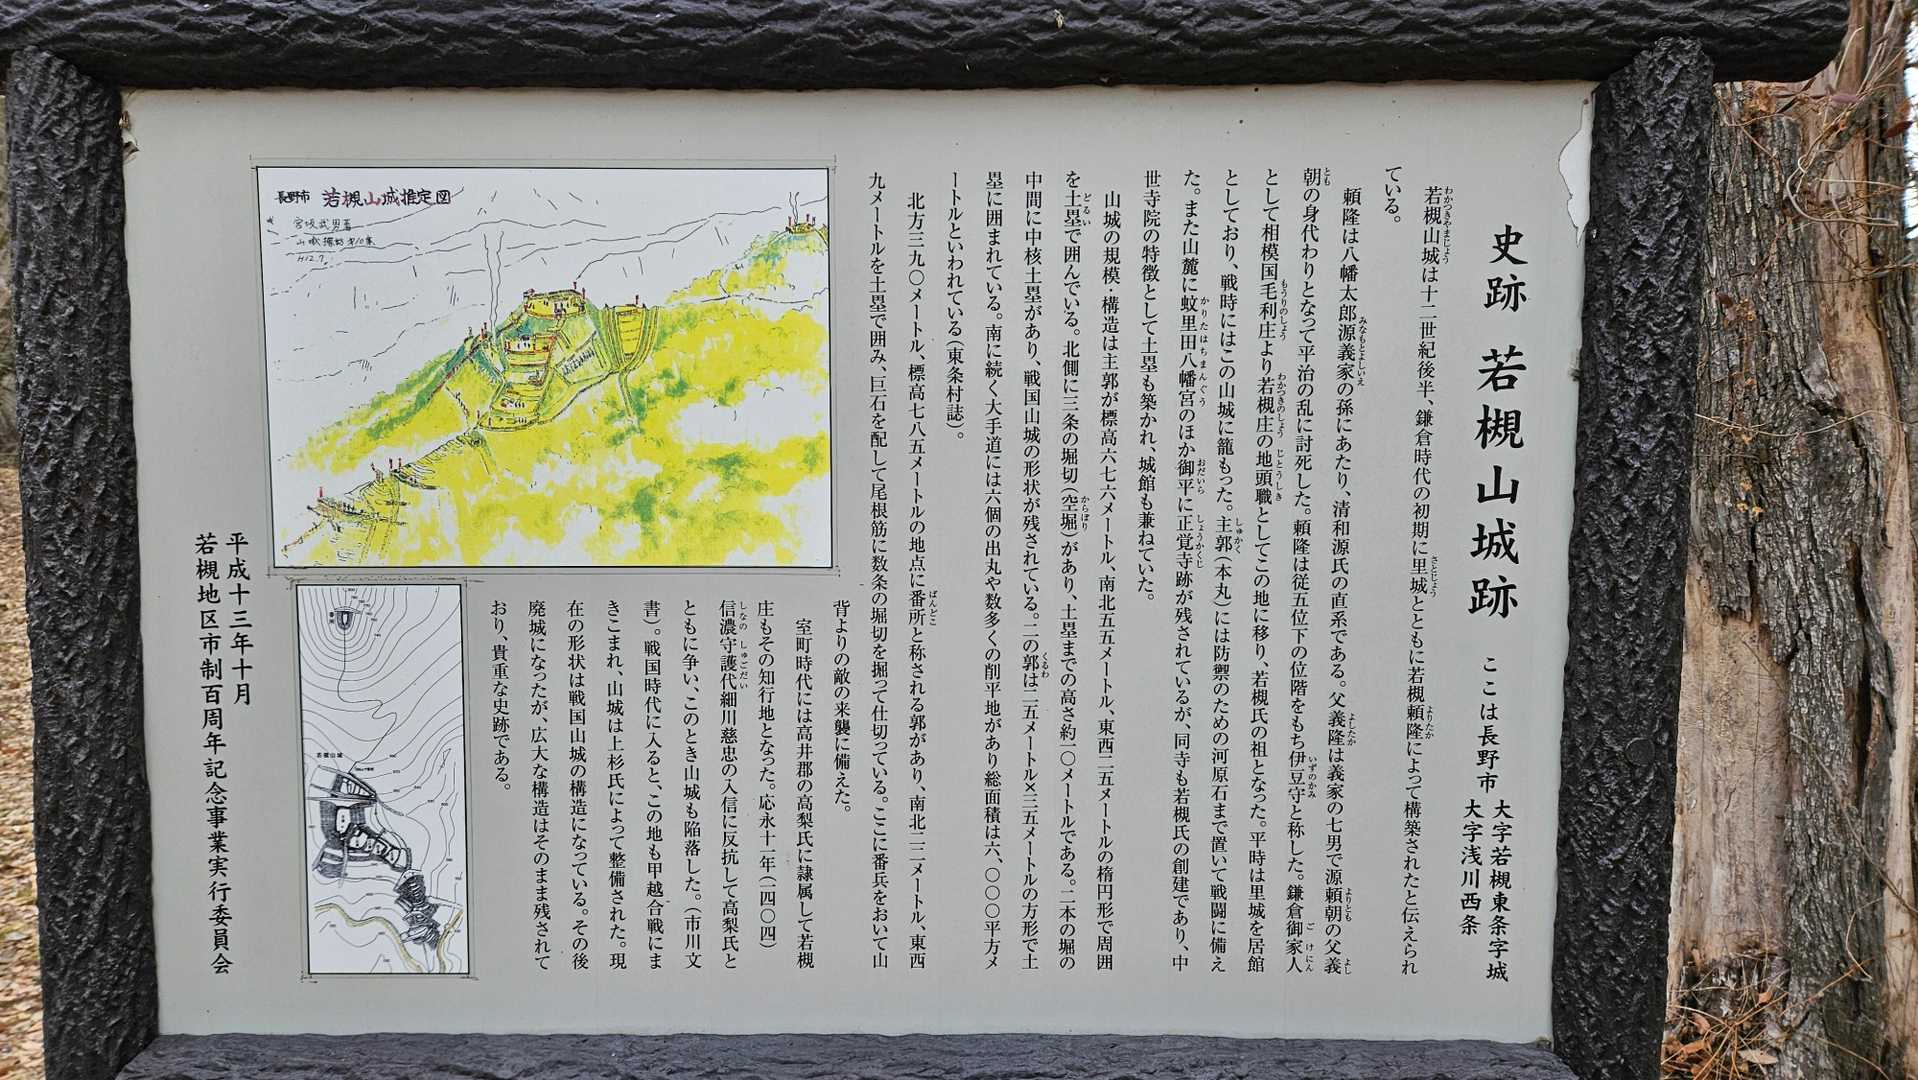 史跡 若槻山城跡
ここは長野市 大字若槻東条字城
大字浅川西条
若槻山城は十二世紀後半、鎌倉時代の初期に里城とともに若槻頼隆によって構築されたと伝えられ
ている。
頼隆は八幡太郎源義家の孫にあたり、清和源氏の直系である。父義隆は義家の七男で源頼朝の父義
朝の身代わりとなって平治の乱に討死した。頼隆は従五位下の位階をもち伊豆守と称した。鎌倉御家人
として相模国毛利庄より若槻庄の地頭職としてこの地に移り、若槻氏の祖となった。平時は里城を居館
としており、戦時にはこの山城に籠もった。主郭(本丸)には防禦のための河原石まで置いて戦闘に備え
た。また山麓に蚊里田八幡宮のほか御平に正覚寺跡が残されているが、同寺も若槻氏の創建であり、中
世寺院の特徴として土塁も築かれ、城館も兼ねていた。
山城の規模・構造は主郭が標高六七六メートル、南北五五メートル、東西二五メートルの楕円形で周囲
を土塁で囲んでいる。北側に三条の堀切(空堀)があり、土塁までの高さ約一〇メートルである。二本の堀の
中間に中核土塁があり、戦国山城の形状が残されている。二の郭は二五メートル×三五メートルの方形で土
塁に囲まれている。南に続く大手道には六個の出丸や数多くの削平地があり総面積は六、〇〇〇平方メ
ートルといわれている(東条村誌)。
北方三九〇メートル、標高七八五メートルの地点に番所と称される郭があり、南北二二メートル、東西
九メートルを土塁で囲み、巨石を配して尾根筋に数条の堀切を掘って仕切っている。ここに番兵をおいて山
背よりの敵の来襲に備えた。
室町時代には高井郡の高梨氏に隷属して若槻
庄もその知行地となった。応永十一年(一四〇四)
信濃守護代細川慈忠の入信に反抗して高梨氏と
ともに争い、このとき山城も陥落した。(市川文
書)。戦国時代に入ると、この地も甲越合戦にま
きこまれ、山城は上杉氏によって整備された。現
在の形状は戦国山城の構造になっている。その後
廃城になったが、広大な構造はそのまま残されて
おり、貴重な史跡である。
長野市 若槻山城推定図
宮坂武男著
H12.7
若槻山城
平成十三年十月
若槻地区市制百周年記念事業実行委員会